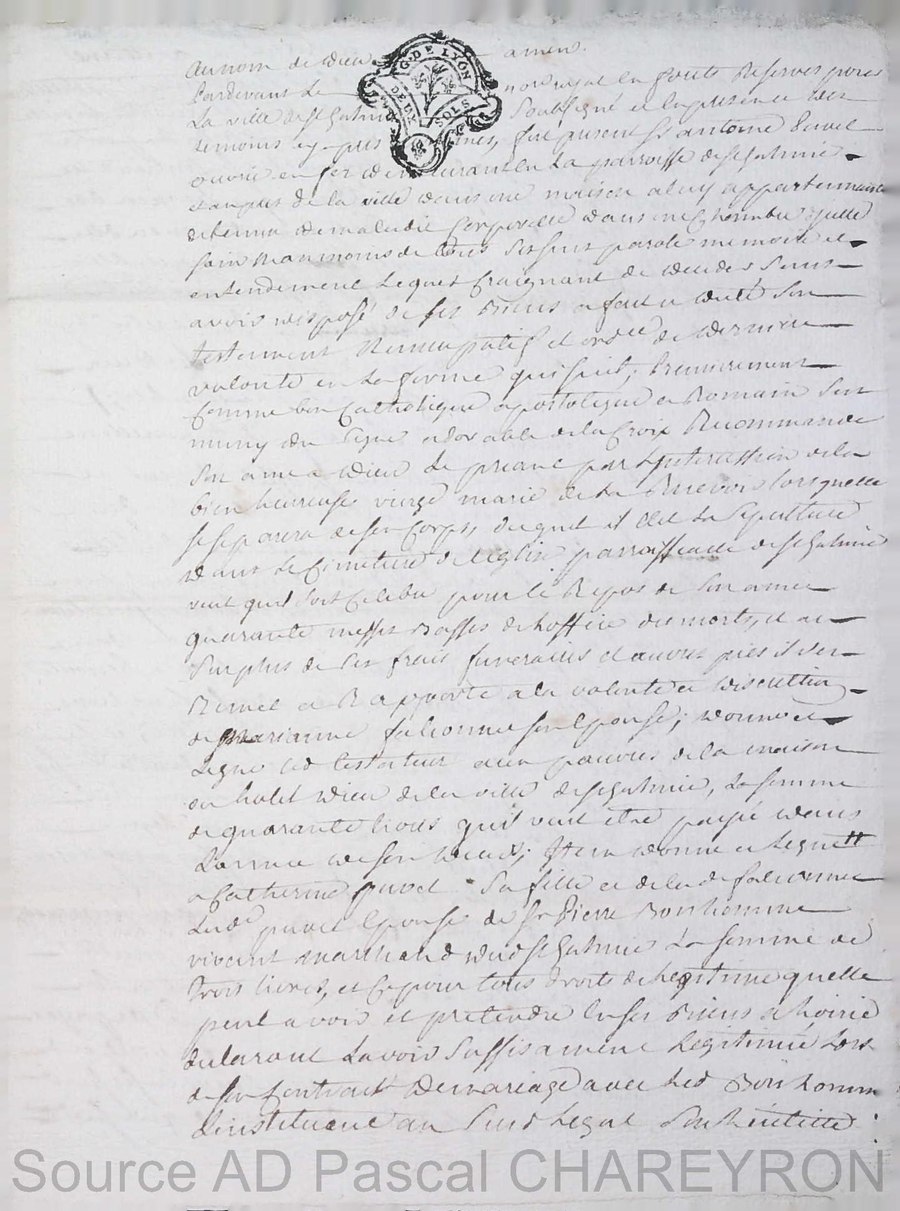 au nom de Dieu amen.
Pardevant Le nore royal en forests Reservé pour
La ville de St Galmier Soussigné et en presence des
temoins cy apres nommes, fut present Sr antoine Puvel
ouvrier en fer demeurant en La parroisse de St Galmier
et au pres de la ville dans une maison a luy appartenante
detenu de maladie Corporelle dans une Chambre
Sain neanmoins de tous Ses Sens parole memoire et
entendement Lequel Craignant de deceder Sans
avoir disposé de Ses Biens a fait et dicté Son
testement Nuncupatif et ordre de derniere
volonté en La forme qui Suit; Premierement
Comme bon Catholique apostolique et Romain Sest
muny du Signe adorable de la Croix Recommandé
Son ame a Dieu Le priant par L'intercession de la
bien heureuse vierge marie de La Recevoir lors quelle
Se Separera de Son Corps, duquel il elit La Sepulture
dans Le Cimetiere de leglise parroissialle de St Galmier
veut quil Soit Celebré pour le Repos de Son ame
quarante messes Basses de Loffice des morts, et au
Surplus de Ses frais funeraires et œuvres pies il Sen
Remet et Rapporte a la volonté et discretion
de Marianne falconnet Son Epouse; donne et
Legue led testateur aux pauvres de la maison
ou hotel Dieu de la ville de St Galmier, La Somme
de quarante Livres quil veut etre payée dans
Lannée de Son deces; Item donne et Legue
a Catherine puvel Sa fille et de lad falconnet
Lade puvel Epouse de Sr Pierre Bonhomme
vivant marchand dud St Galmier La Somme de
Trois livres, et Ce pour tous droits de Legitime quelle
peut avoir et pretendre en Ses Biens et hoirie
declarant Lavoir Suffisament Legitimée Lors
de Son Contrat de mariage avec Led Bonhomme
Linstituant au Susd Legat Son heritiere
G. DE LYON
DEUX SOLS
Source AD Pascal CHAREYRON